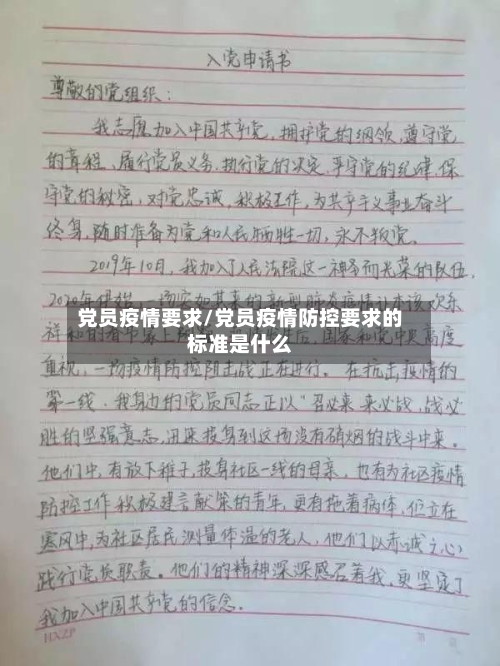 入党申请书
尊敬的党组织：
我志愿加入中国共产党，拥护党的纲领，遵守党
的章程，履行党员义务，执行党的决定，严守党的纪律，保
守党的秘密，对党忠诚，积极工作，为共产主义事业奋斗
终身，随时准备为党和人民牺牲一切，永不叛党。
2019年10月，我加入了人民法院这一神圣而光荣的队伍，
党员疫情要求/党员疫情防控要求的
标准是什么
重视，一场疫情防控阻击战正在进行。在抗击疫情的
第一线，我身边的党员同志正以“召必来，来必战，战必
胜的坚强意志，迅速投身到这场没有硝烟的战斗中来。
他们中，有放下稚子，投身社区一线的母亲，也有为社区疫情
防控工作积极建言献策的青年，更有拖着病体，伫立在
寒风中，为社区居民测量体温的老人，他们以赤诚之心
践行党员职责。他们的精神深深感召着我，更坚定了
我加入中国共产党的信念。
HXZP